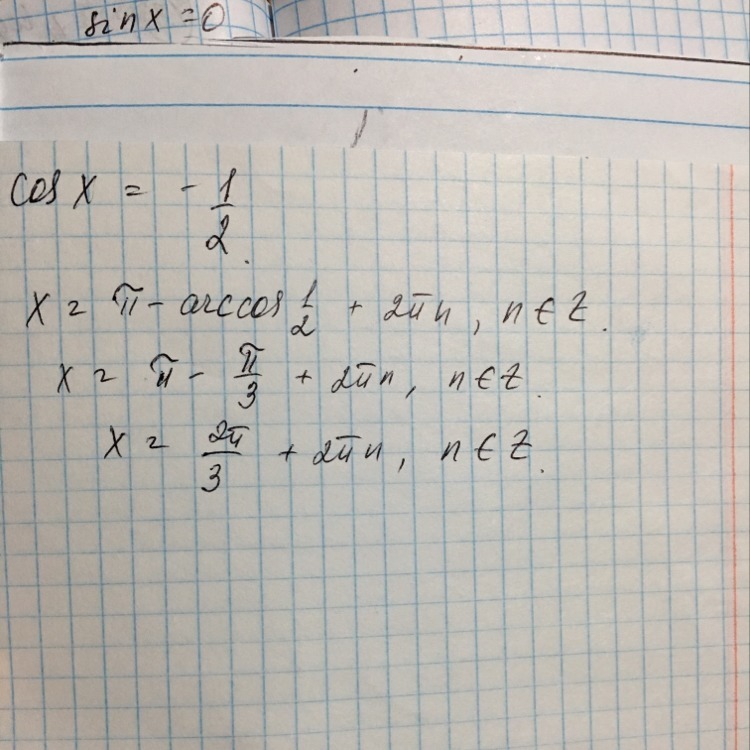 sin x = 0
cos x = - 1/2.
x = π - arccos 1/2 + 2πn, n ∈ Z.
x = π - π/3 + 2πn, n ∈ Z.
x = 2π/3 + 2πn, n ∈ Z.